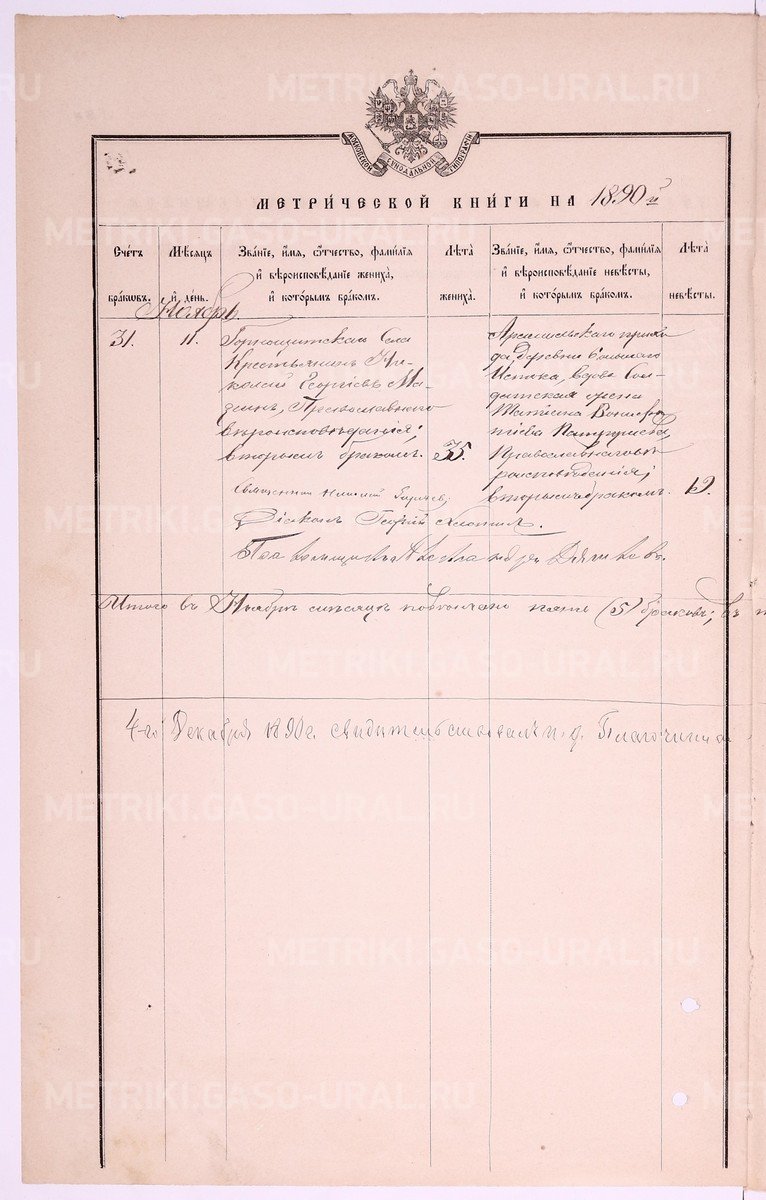 МОСКОВСКОЙ СѴНОДАЛЬНОЙ ТИПОГРАФІИ
МЕТРИ́ЧЕСКОЙ КНИ́ГИ НА 1890й
Сче́тъ бра́ковъ.
Мѣ́сяцъ и҆ де́нь.
Зва́нїе, и҆́мѧ, ѻ҆́тчество, фамѝлїѧ и҆ вѣроисповѣ́данїе жениха̀, и҆ кото́рымъ бра́комъ.
Лѣ́та жениха̀.
Зва́нїе, и҆́мѧ, ѻ҆́тчество, фамѝлїѧ и҆ вѣроисповѣ́данїе невѣ́сты, и҆ кото́рымъ бра́комъ.
Лѣ́та невѣ́сты.
Ноябрь.
31.
11.
Горнощитскаго Села
Крестьянинъ Ни-
колай Георгіевъ
Православнаго
вѣроисповѣданія;
вторымъ бракомъ.
35.
Арамильскаго прихо-
да, деревни Большаго
Истока, вдова Сол-
датская жена
Татіана
Православнаго вѣ-
роисповѣданія;
вторымъ бракомъ.
Священникъ Николай
Діаконъ Георгій
Псаломщикъ Александръ
Итого въ Ноябрѣ мѣсяцѣ повѣнчано пять (5) браковъ; въ
4-го Декабря 1890 г. свидѣтельствовалъ и. д. Благочиннаго
METRIKI.GASO-URAL.RU